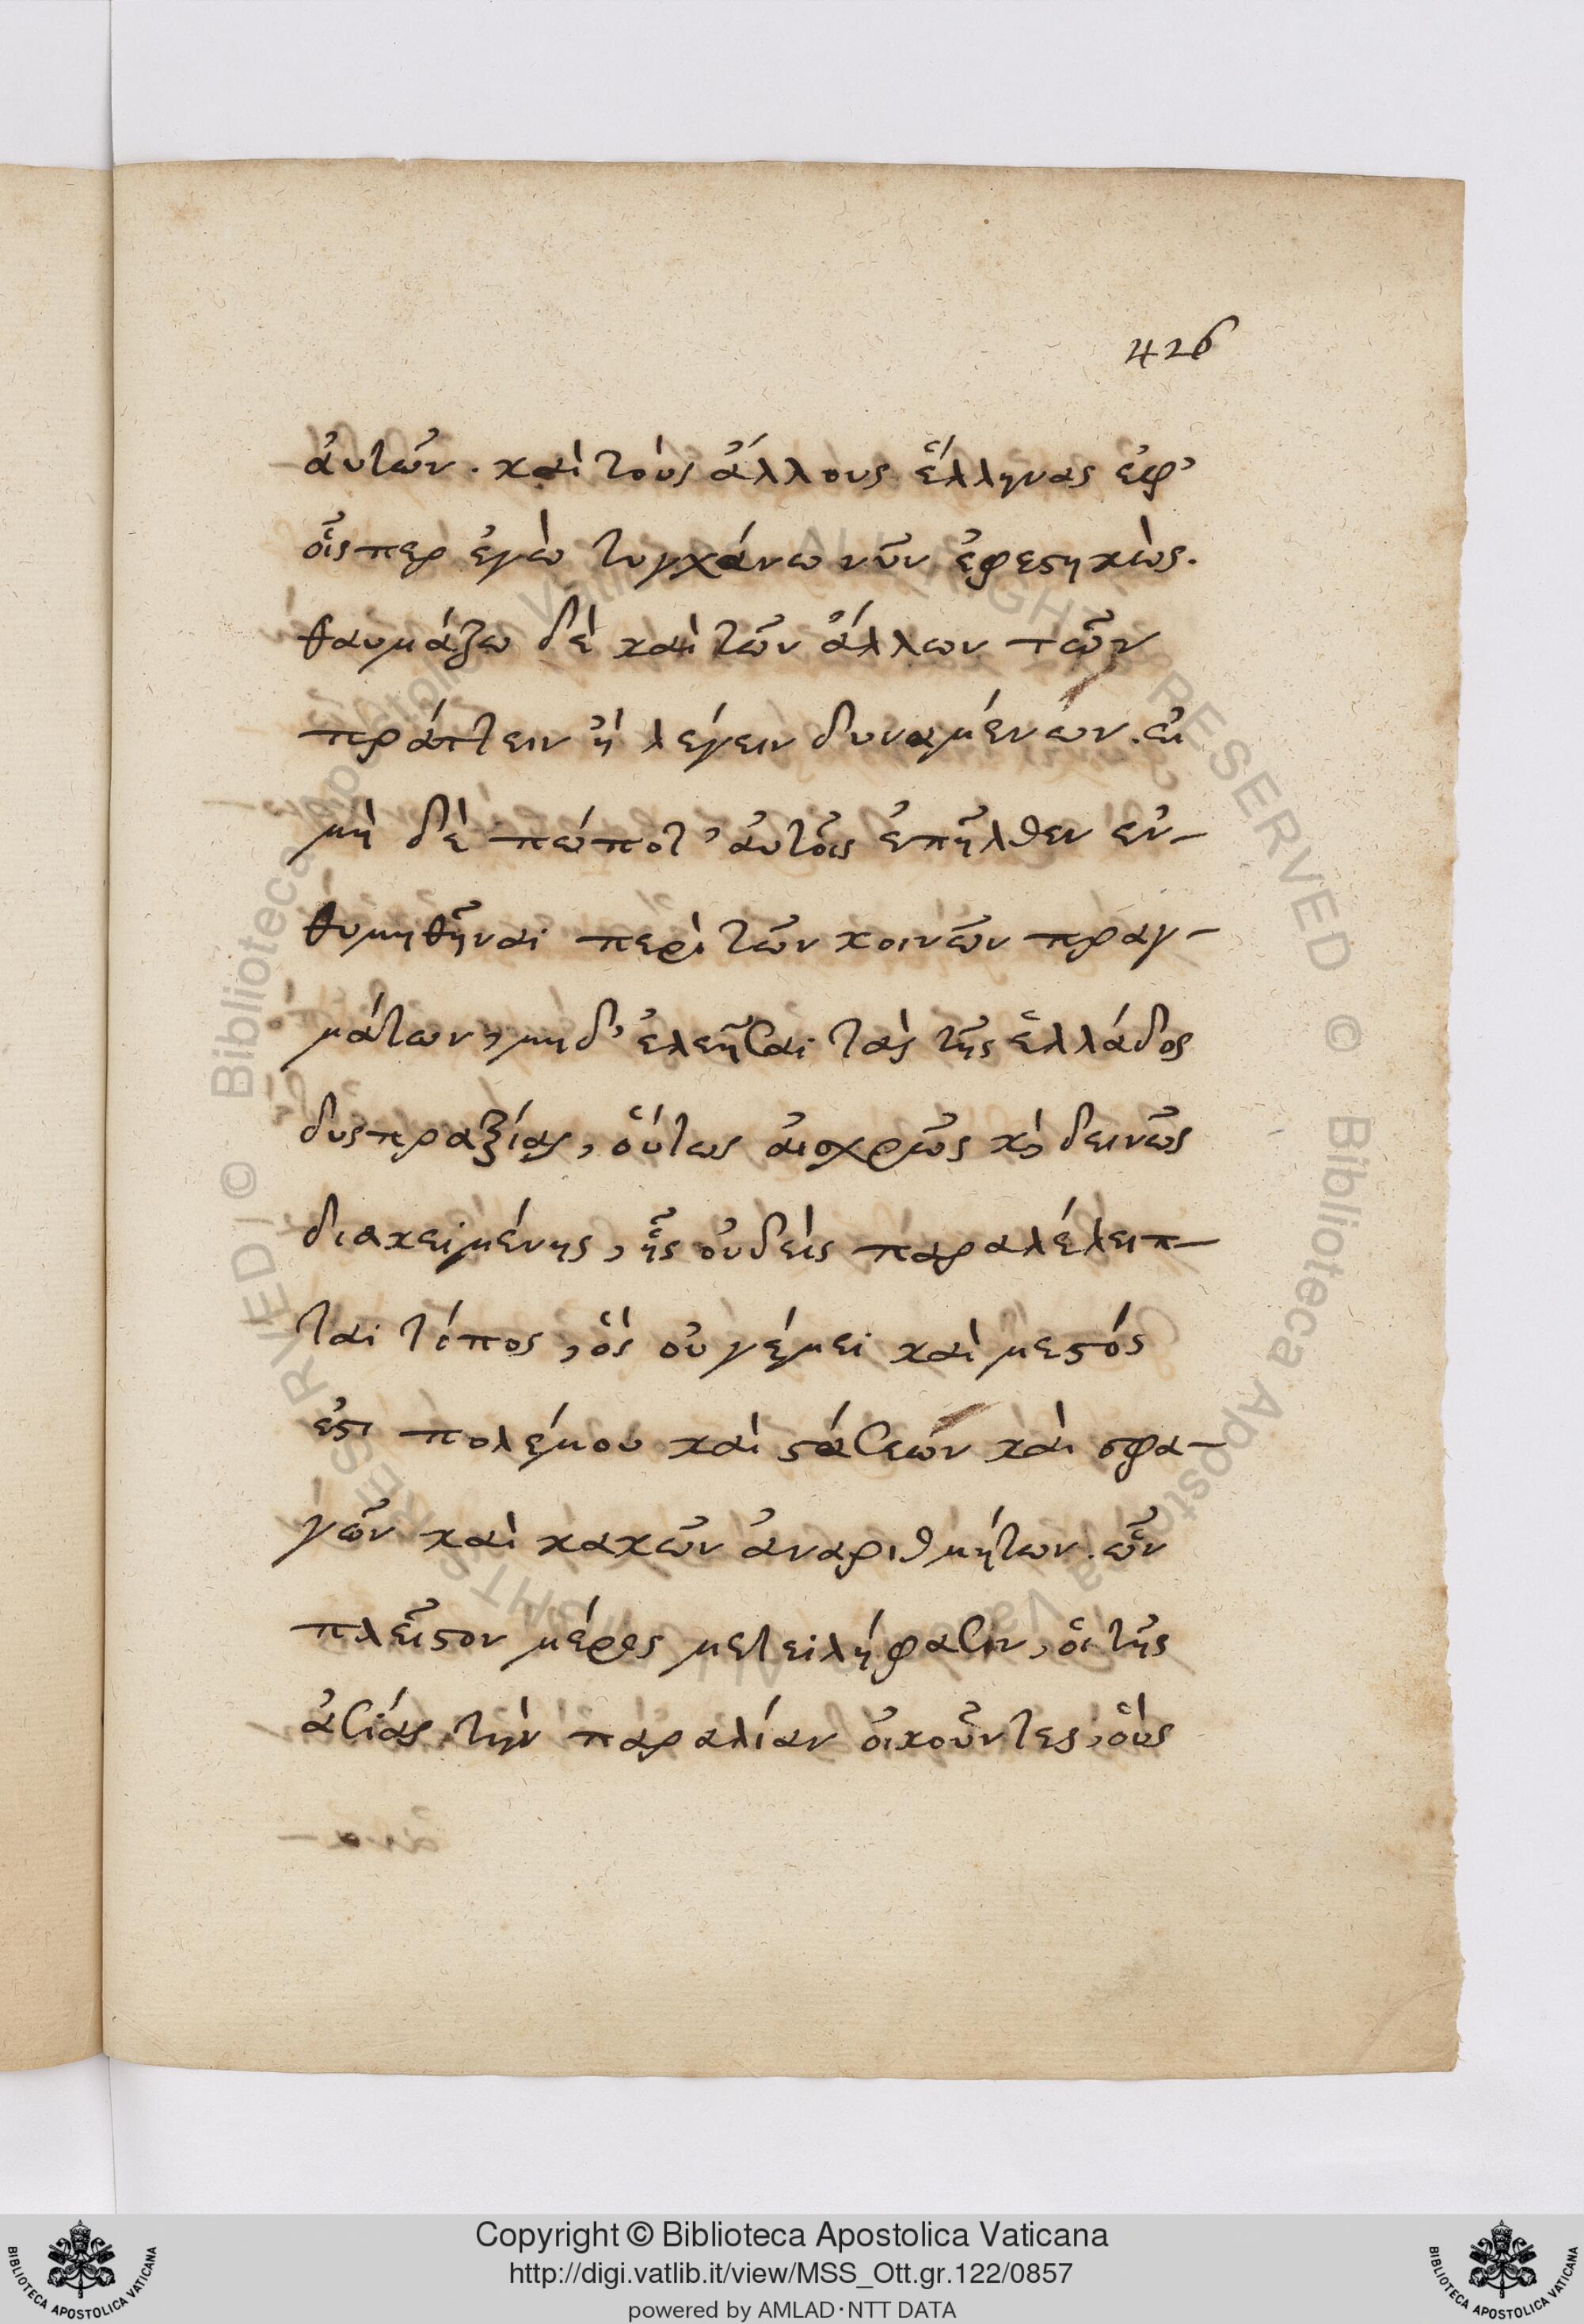 426
ἀυτῶν. καὶ τοὺς ἄλλους ἕλληνας ἐφ’
οἷςπερ ἐγὼ τυγχάνω νῦν ἐφεστηκὼς.
θαυμάζω δὲ καὶ τῶν ἄλλων τῶν
πράττειν ἢ λέγειν δυναμένων. εἰ
μὴ δὲ πώποτ’ ἀυτοῖς ἐπῆλθεν ἐν-
θυμηθῆναι περὶ τῶν κοινῶν πραγ-
μάτων, μηδ’ ἐλεῆσαι τὰς τῆς ἑλλάδος
δυςπραξίας, ὅυτως ἀισχρῶς κὶ δεινῶς
διακειμένης, ἧς ὀυδεὶς παραλέλειπ-
ται τόπος, ὃς ὀυ γέμει καὶ μεστός
ἐστι πολέμου καὶ στάσεων καὶ σφα-
γῶν καὶ κακῶν ἀναριθμήτων. ὧν
πλεῖστον μέρος μετειλήφασιν, ὁι τῆς
ἀσίας τὴν παραλίαν ὀικοῦντες, ὃυς
Copyright © Biblioteca Apostolica Vaticana
http://digi.vatlib.it/view/MSS_Ott.gr.122/0857
powered by AMLAD·NTT DATA
BIBLIOTECA APOSTOLICA VATICANA
BIBLIOTECA APOSTOLICA VATICANA